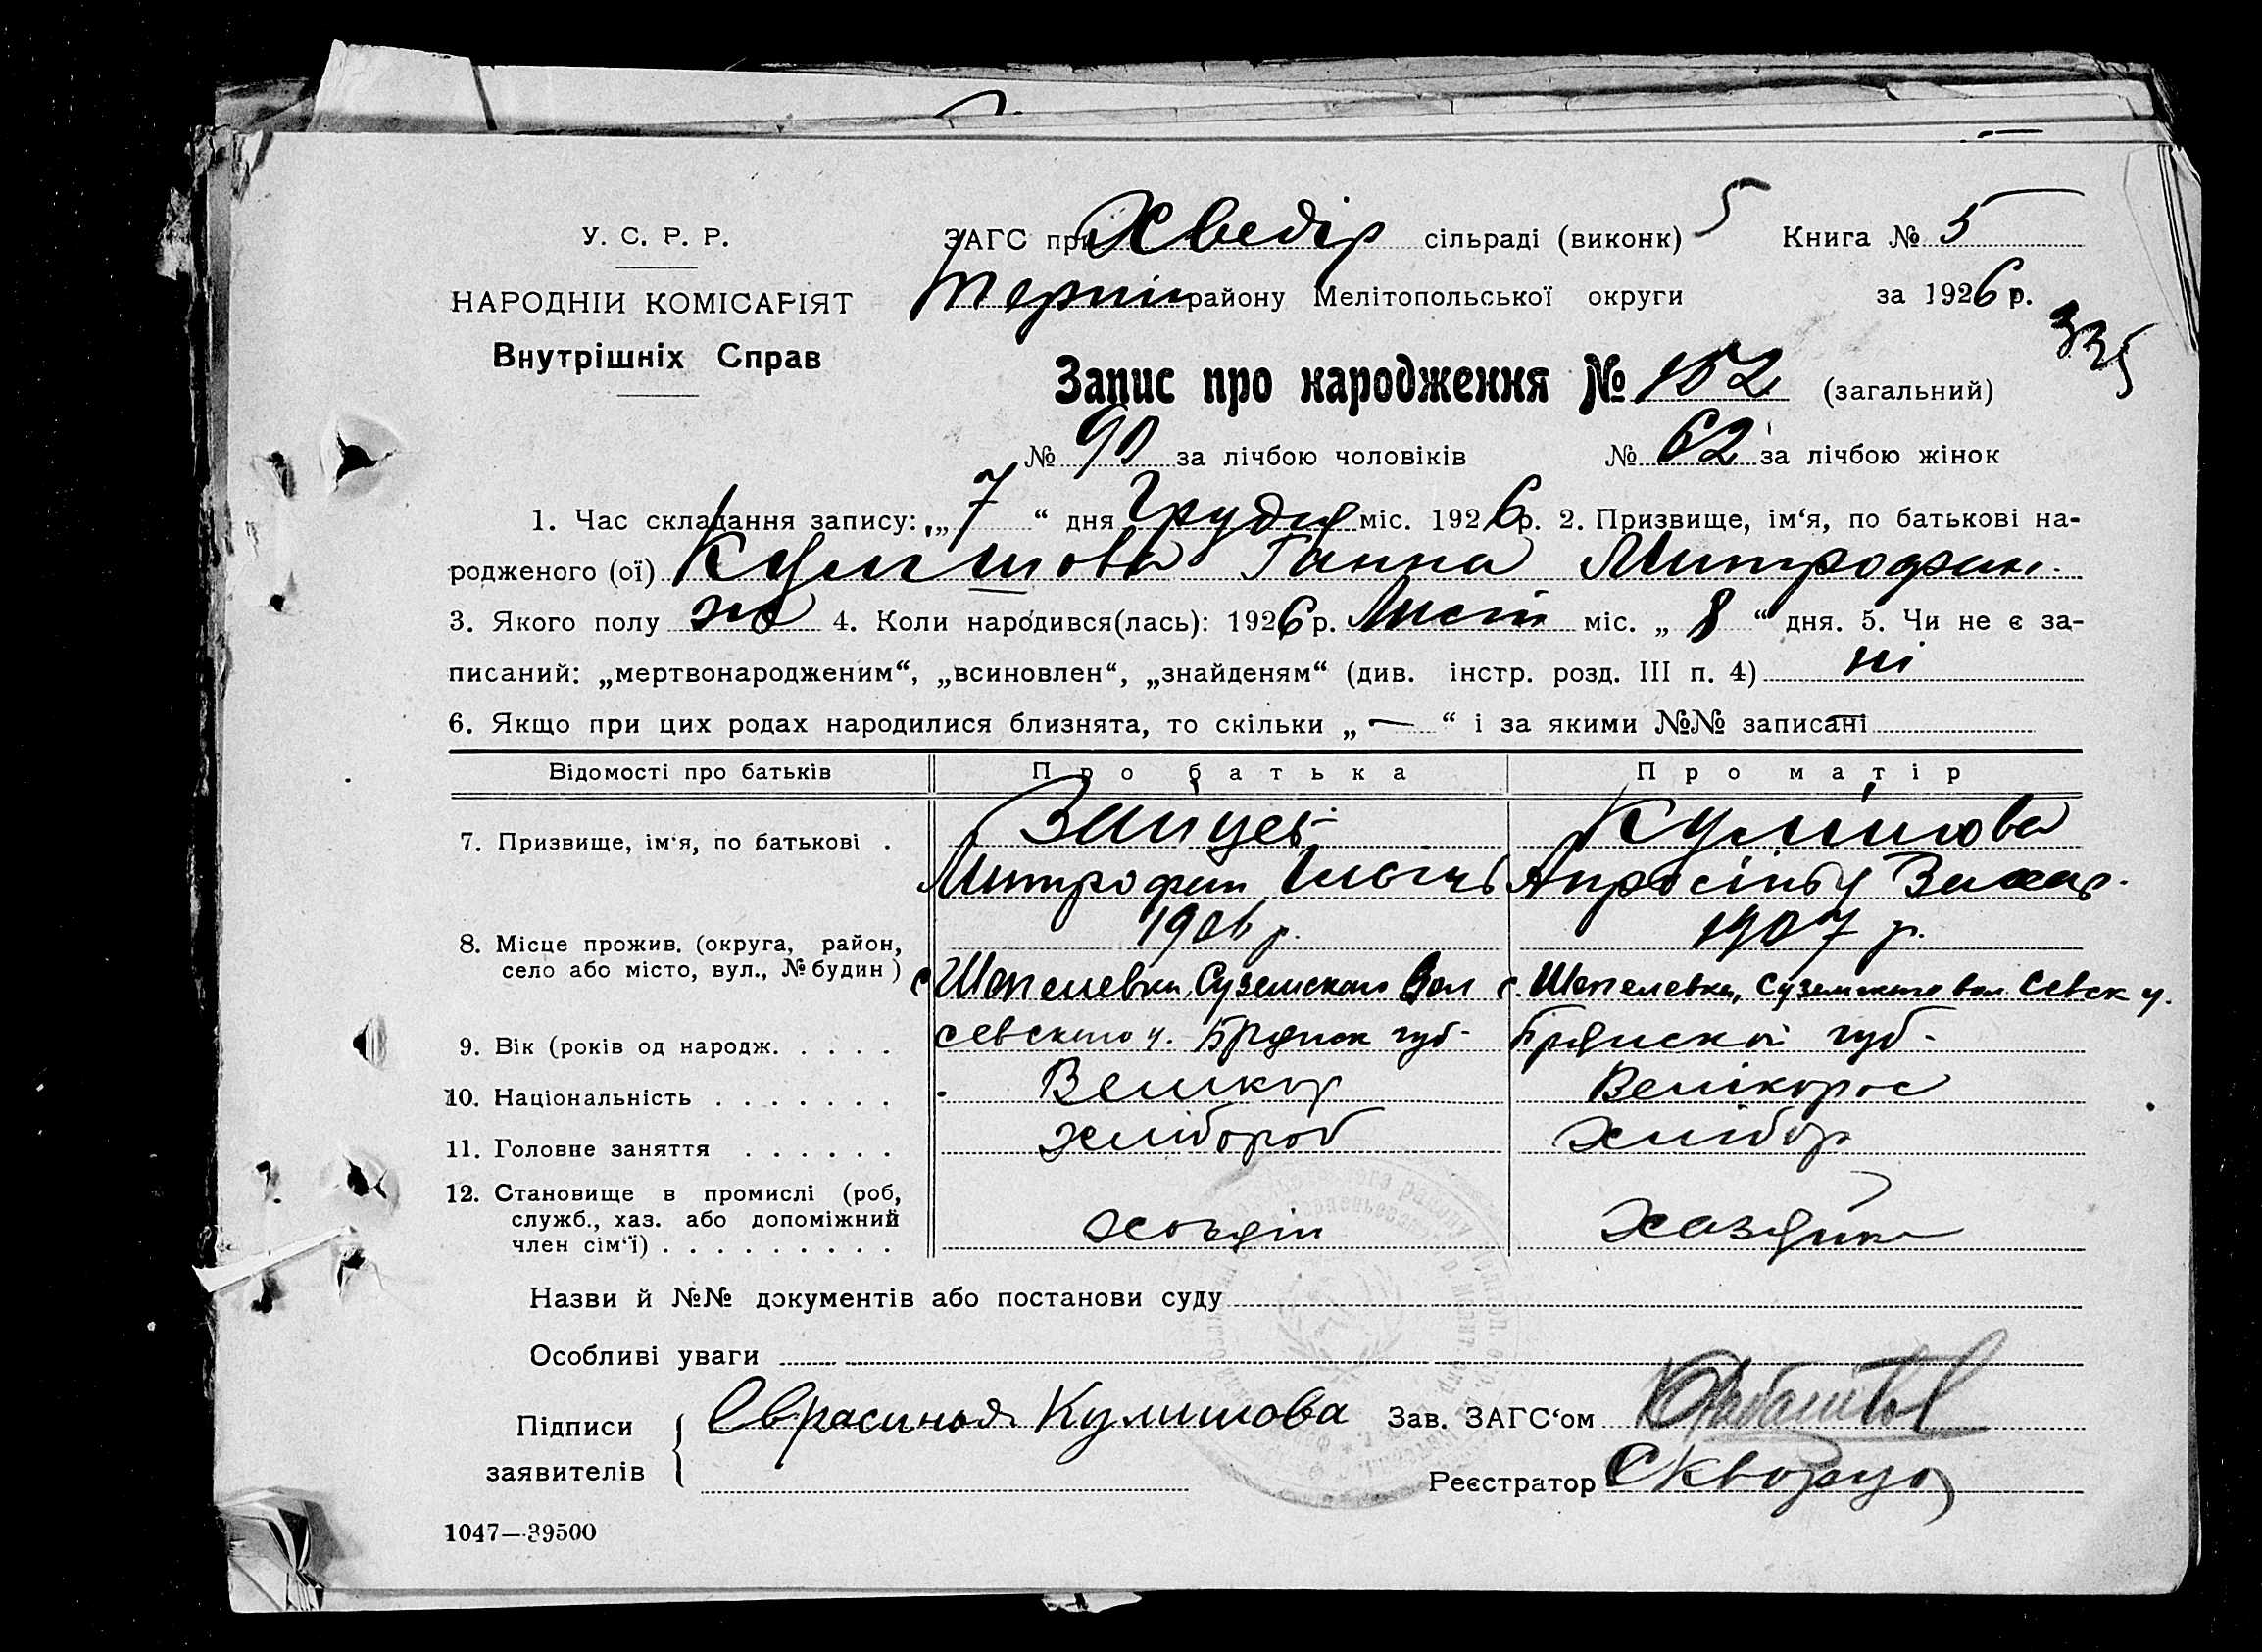 У. С. Р. Р.
НАРОДНІЙ КОМІСАРІЯТ
Внутрішніх Справ
ЗАГС при Хведір сільраді (виконк) 5 Книга № 5
Терпін району Мелітопольської округи за 1926 р.
335
Запис про народження № 152 (загальний)
№ 90 за лічбою чоловіків № 62 за лічбою жінок
1. Час складання запису: „7“ дня Грудня міс. 1926 р. 2. Призвище, ім‘я, по батькові на-
родженого (ої) Кулишова Ганна Митрофан.
3. Якого полу жо 4. Коли народився(лась): 1926 р. Лист міс. „8“ дня. 5. Чи не є за-
писаний: „мертвонародженим“, „всиновлен“, „знайденям“ (див. інстр. розд. III п. 4) ні
6. Якщо при цих родах народилися близнята, то скільки „—“ і за якими №№ записані
Відомості про батьків Про батька Про матір
7. Призвище, ім‘я, по батькові . Зайцев Кулішова
Митрофан Ильічь Апросінья Захар.
1906 р. 1907 р.
8. Місце прожив. (округа, район,
село або місто, вул., № будин) с Шепелевки, Суземского Вол с. Шепелевка, Суземского вол. Севск у.
9. Вік (років од народж. . . . . Севского у. Брянск губ- Брянской губ-
10. Національність . . . . . . . Великор Велікорос
11. Головне заняття . . . . . . хлібороб хлібор
12. Становище в промислі (роб,
служб., хаз. або допоміжний
член сім‘ї) . . . . . . . . . хозяїн хазяйка
Назви й №№ документів або постанови суду
Особливі уваги
Підписи
заявителів
Еврасинья Кулишова Зав. ЗАГС‘ом
Реєстратор Скворцов
1047—39500